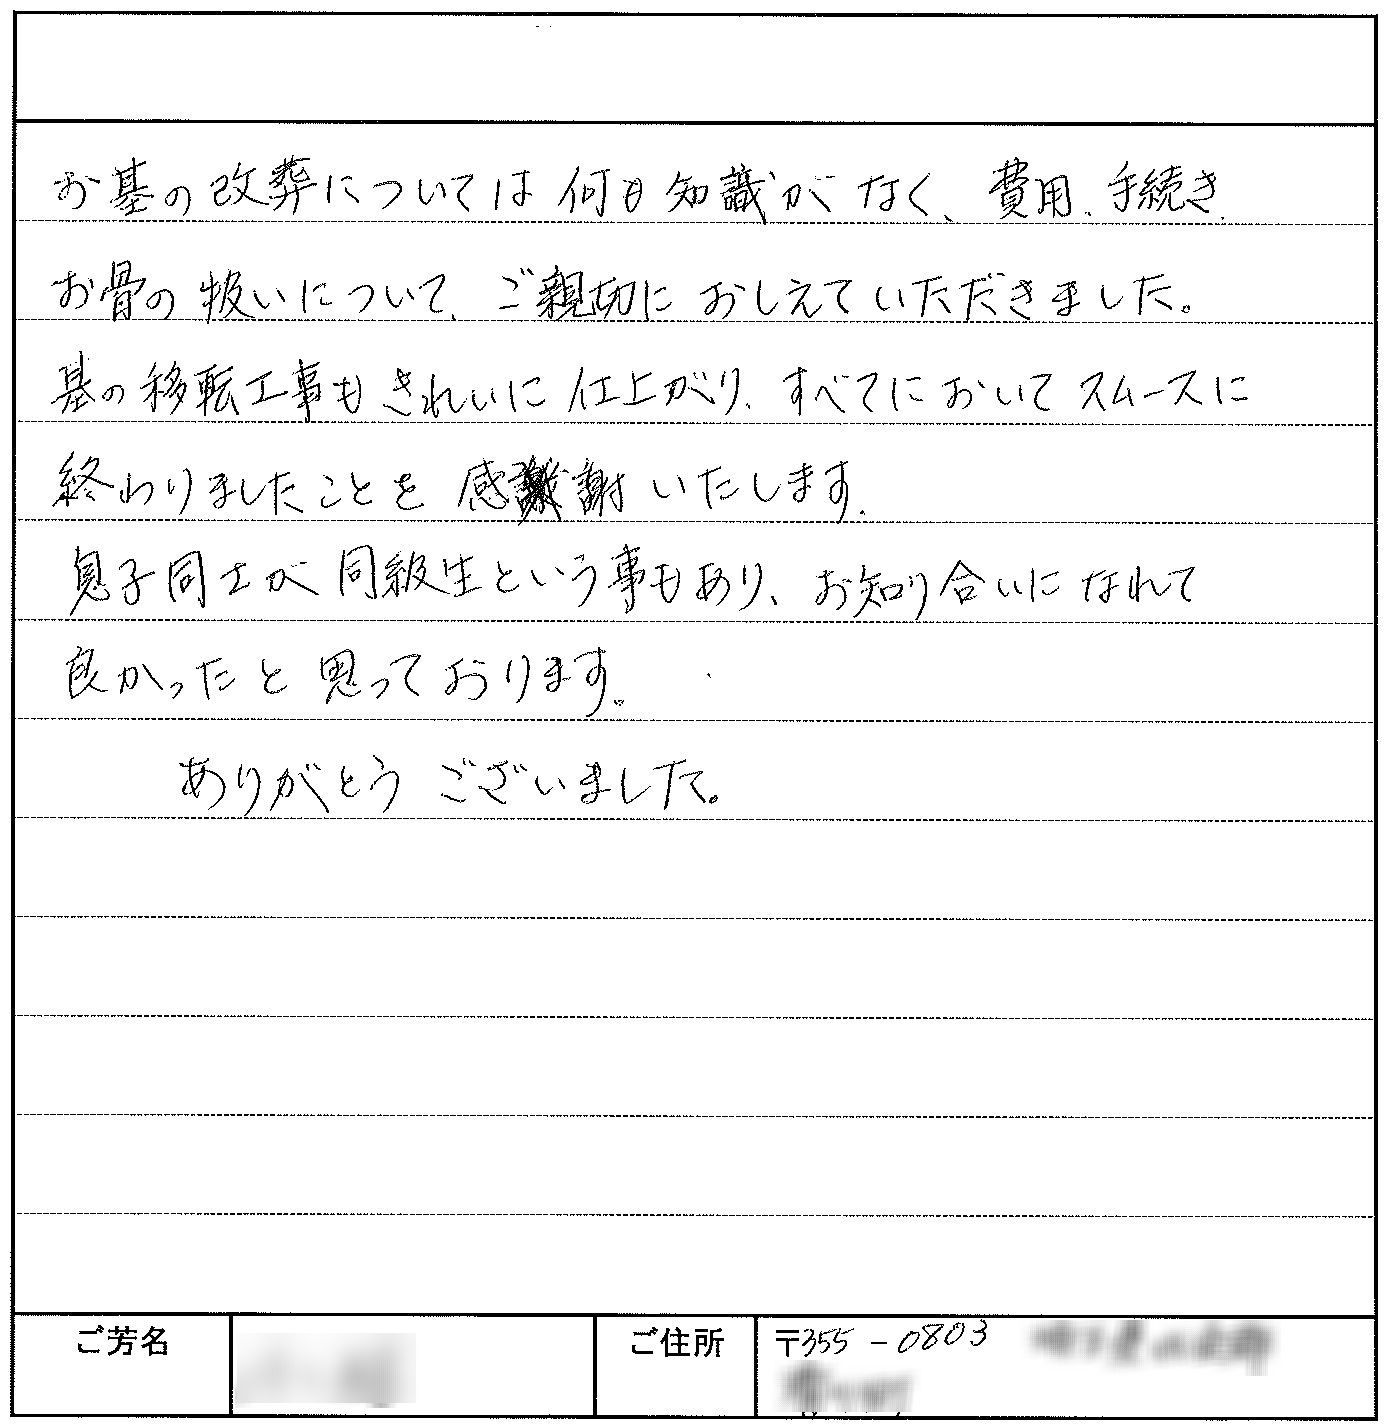 お墓の改葬については何も知識がなく、費用、手続き、
お骨の扱いについて、ご親切におしえていただきました。
墓の移転工事もきれいに仕上がり、すべてにおいてスムースに
終わりましたことを感謝いたします。
息子同士が同級生という事もあり、お知り合いになれて
良かったと思っております。
ありがとうございました。
ご芳名
ご住所 〒355-0803